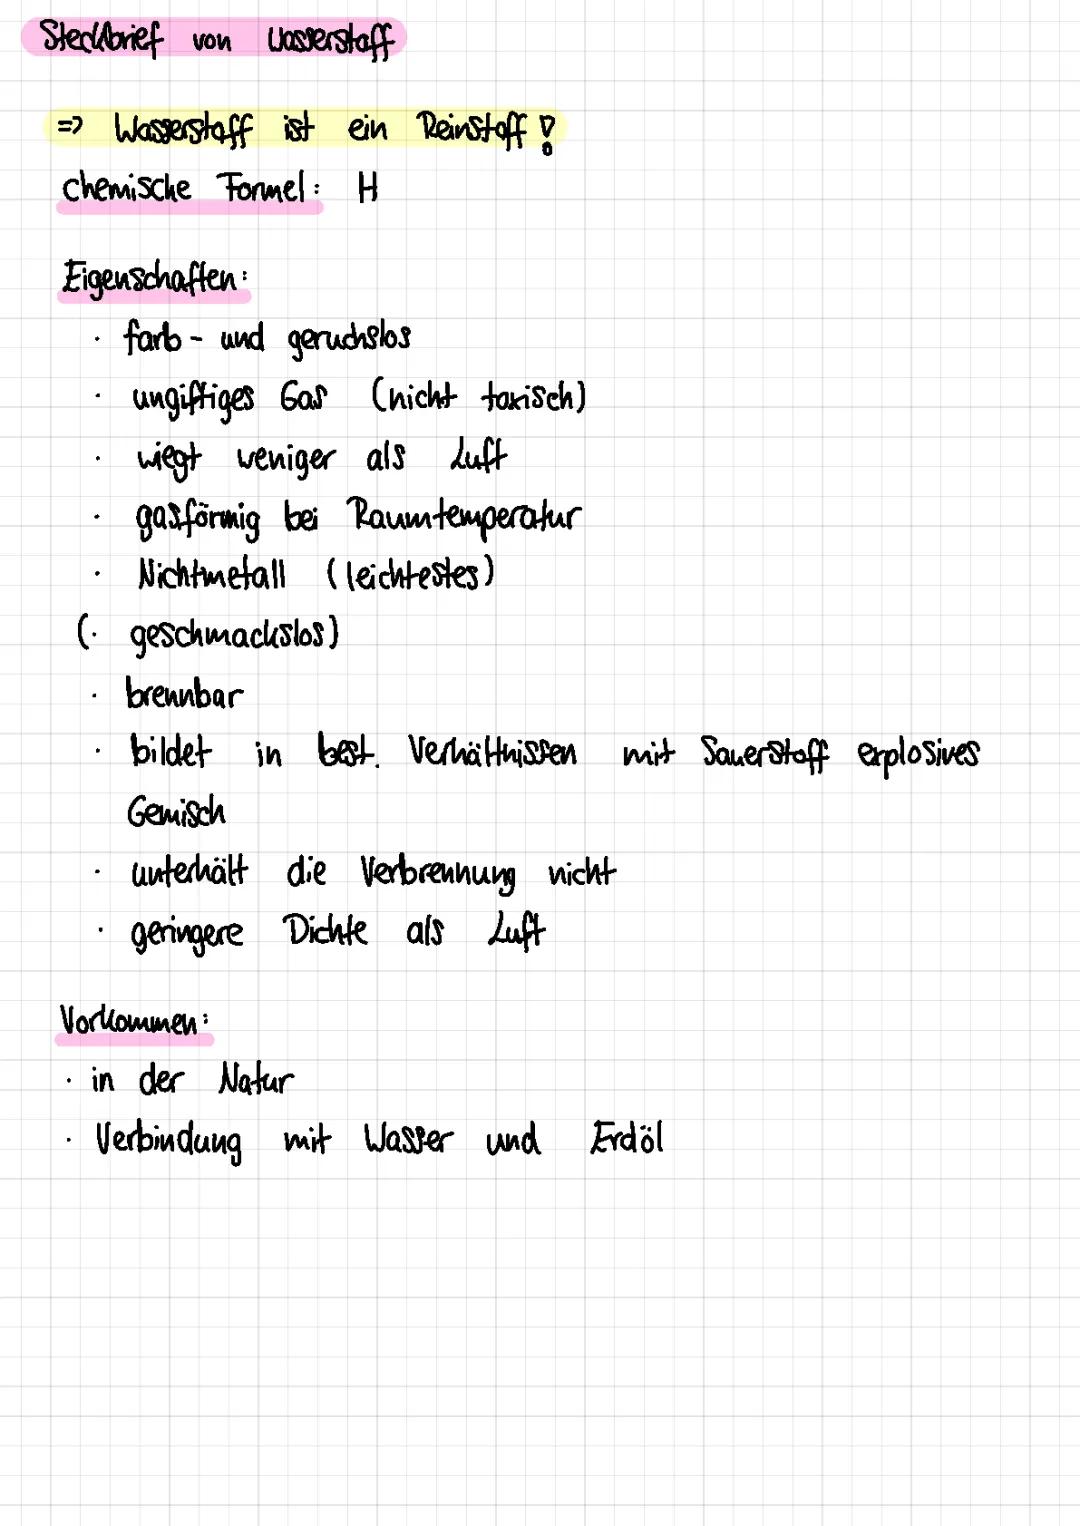 Steckbrief von Wasserstoff
=> Wasserstoff ist ein Reinstoff!
chemische Formel: H
Eigenschaften:
· farb- und geruchslos
· ungiftiges Gas (nicht toxisch)
· wiegt weniger als Luft
· gasförmig bei Raumtemperatur
· Nichtmetall (leichtestes)
(· geschmackslos)
· brennbar
· bildet in best. Verhältnissen mit Sauerstoff explosives
Gemisch
· unterhält die Verbrennung nicht
· geringere Dichte als Luft
Vorkommen:
· in der Natur
· Verbindung mit Wasser und Erdöl